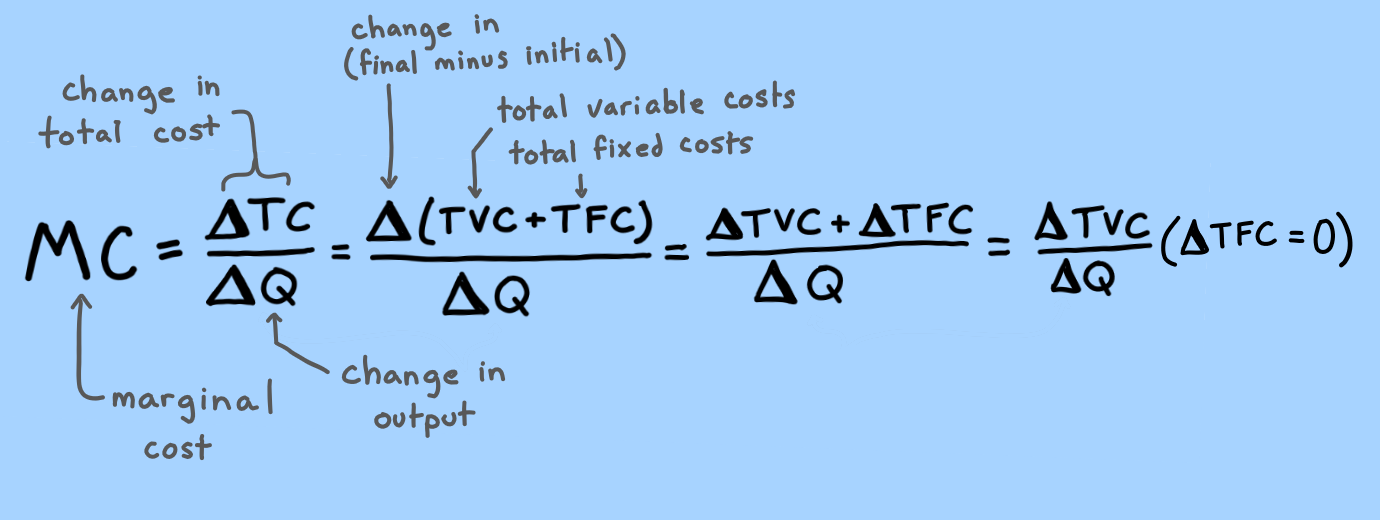 change in
(final minus initial)
change in
total cost
total variable costs
total fixed costs
MC = ΔTC / ΔQ = Δ(TVC + TFC) / ΔQ = ΔTVC + ΔTFC / ΔQ = ΔTVC / ΔQ (ΔTFC = 0)
marginal
cost
change in
output